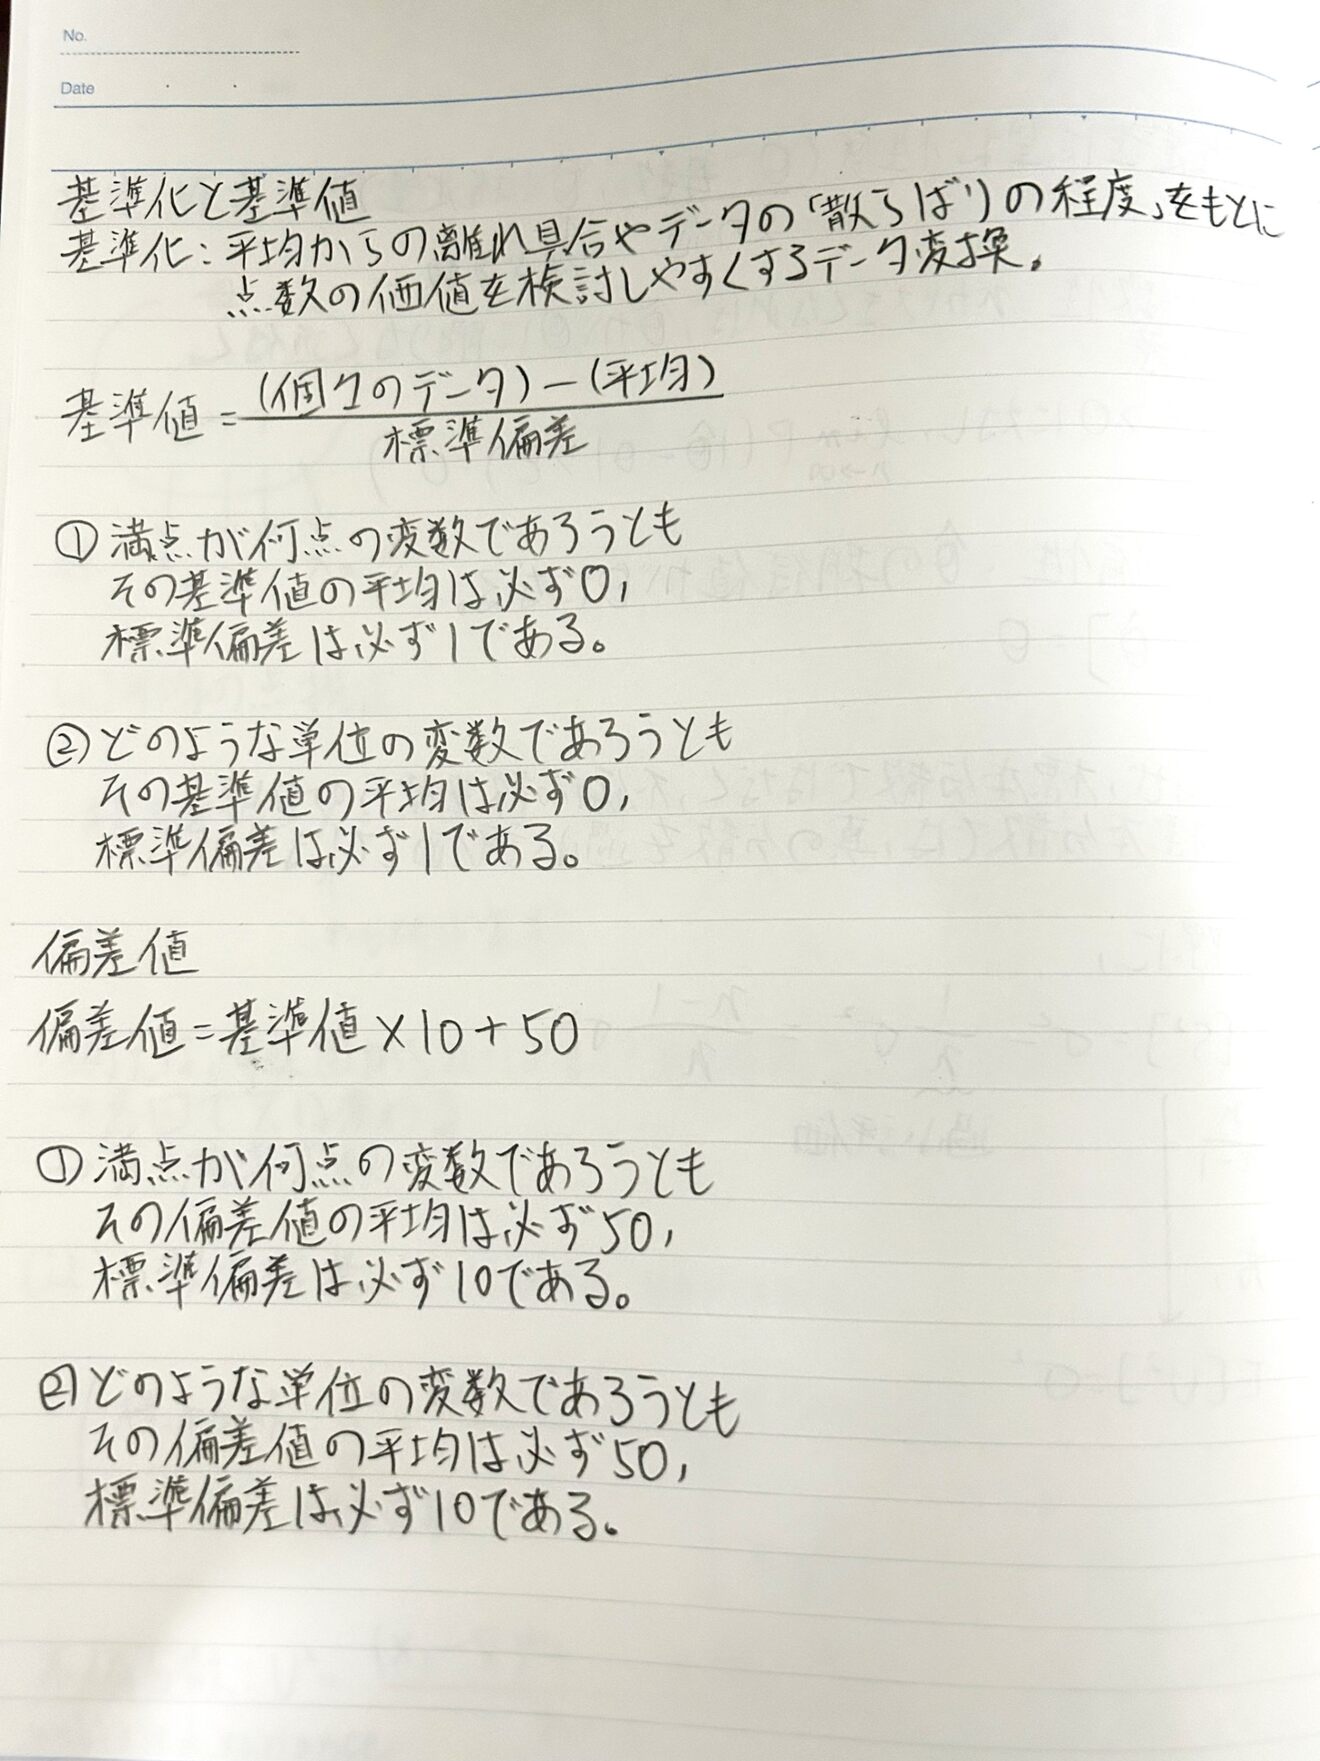 No.
Date
基準化と基準値
基準化：平均からの離れ具合やデータの「散らばりの程度」をもとに
点数の価値を検討しやすくするデータ変換。
基準値 = (個々のデータ) − (平均)
標準偏差
① 満点が何点の変数であろうとも
その基準値の平均は必ず0,
標準偏差は必ず1である。
② どのような単位の変数であろうとも
その基準値の平均は必ず0,
標準偏差は必ず1である。
偏差値
偏差値 = 基準値 × 10 + 50
① 満点が何点の変数であろうとも
その偏差値の平均は必ず50,
標準偏差は必ず10である。
② どのような単位の変数であろうとも
その偏差値の平均は必ず50,
標準偏差は必ず10である。